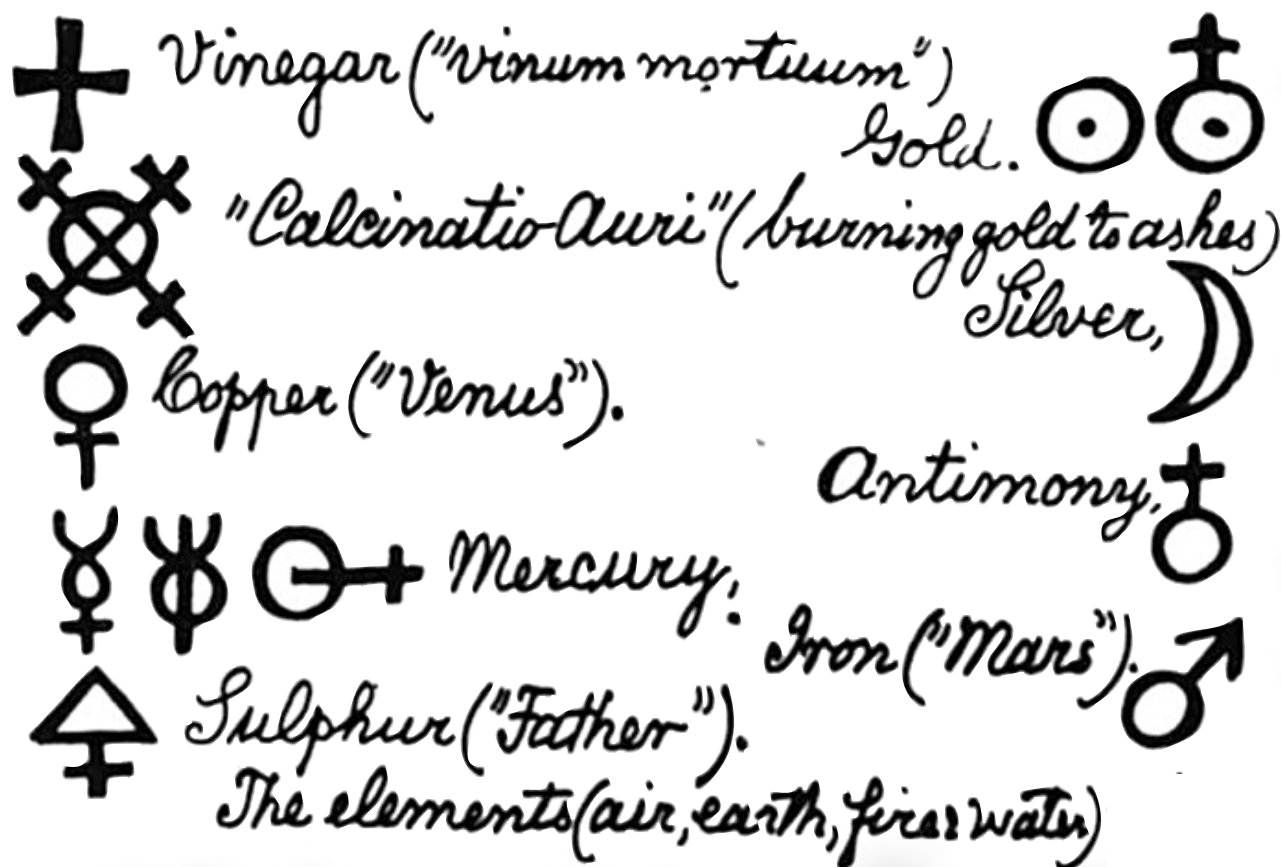 Vinegar ("vinum mortuum")
Gold.
"Calcinatio Auri" (burning gold to ashes)
Silver,
Copper ("Venus").
Antimony,
Mercury.
Iron ("Mars").
Sulphur ("Father").
The elements (air, earth, fire & water)